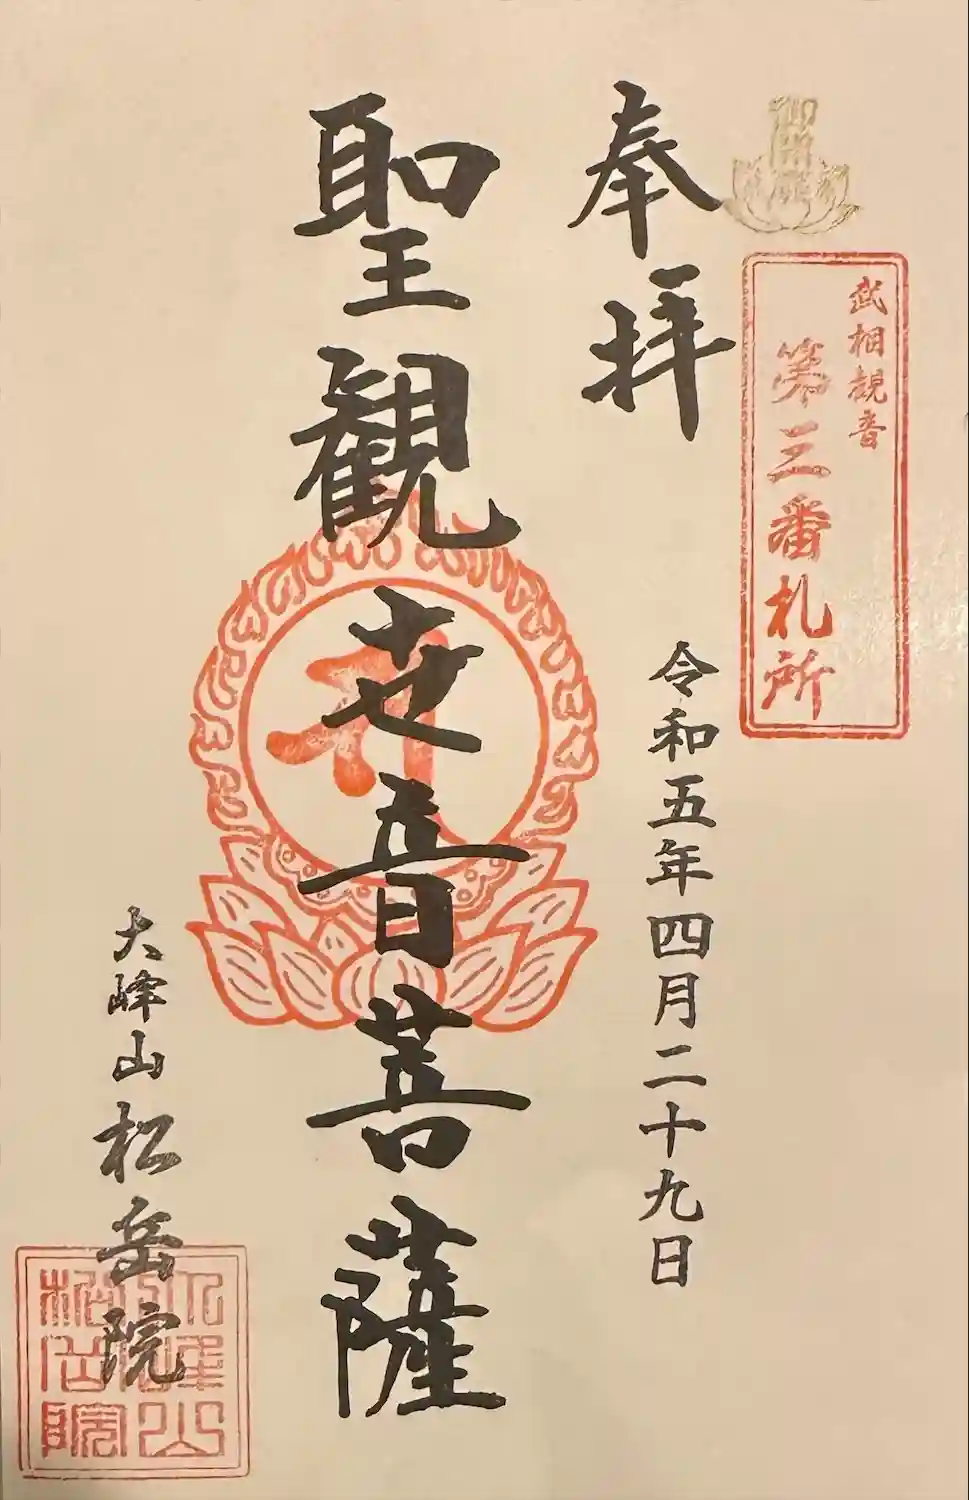 武相観音
第三番札所
奉拝
令和五年四月二十九日
聖観世音菩薩
大峰山松岳院
大峰山
松岳院